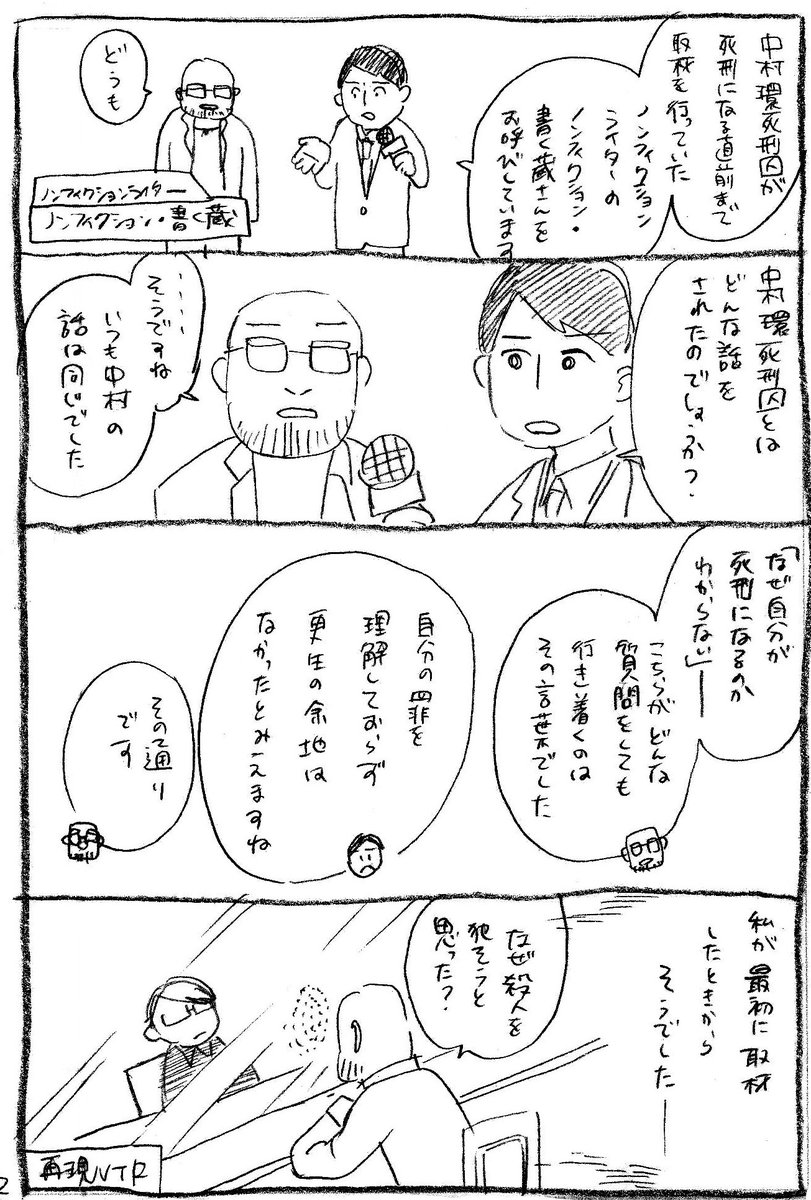 中村環死刑囚が
死刑になる直前まで
取材を行っていた
ノンフィクション
ライターの
ノンフィクション・
書く蔵さんを
お呼びしています
どうも
ノンフィクションライター
ノンフィクション・書く蔵
中村環死刑囚とは
どんな話を
されたのでしょうか?
・・・・
そうですね
いつも中村の
話は同じでした
「なぜ自分が
死刑になるのか
わからない」——
こちらがどんな
質問をしても
行き着くのは
その言葉でした
自分の罪を
理解しておらず
更生の余地は
なかったとみえますね
その通り
です
私が最初に取材
したときから
そうでした——
なぜ殺人を
犯そうと
思った?
再現VTR
2